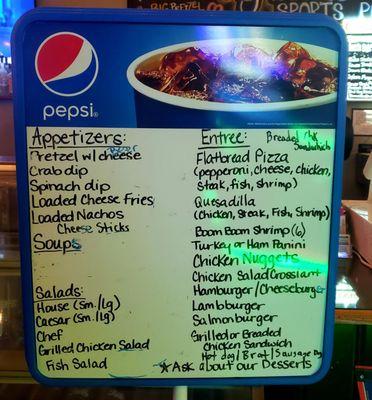 BIG PRETZEL
SPORTS P
pepsi
Appetizers:
Pretzel w/ beer cheese
Crab dip
Spinach dip
Loaded Cheese Fries
Loaded Nachos
Cheese Sticks
Soups
Salads:
House (Sm./lg)
Caesar (Sm./lg)
Chef
Grilled Chicken Salad
Fish Salad
Entree:
Breaded Chk
Sandwich
Flatbread Pizza
(pepperoni, cheese, chicken,
steak, fish, shrimp)
Quesadilla
(Chicken, Steak, Fish, Shrimp)
Boom Boom Shrimp (6)
Turkey or Ham Panini
Chicken Nuggets
Chicken Salad Crossiant
Hamburger/Cheeseburger
Lambburger
Salmonburger
Grilled or Breaded
Chicken Sandwich
Hot dog/Brat/Sausage Dog
*Ask about our Desserts